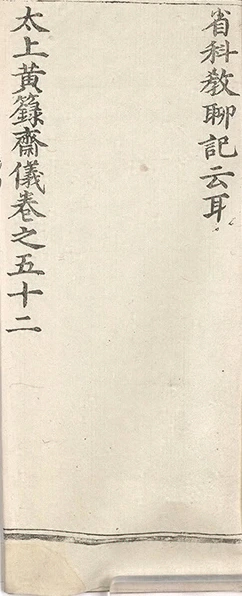 省科教聊記云耳
太上黃籙齋儀卷之五十二